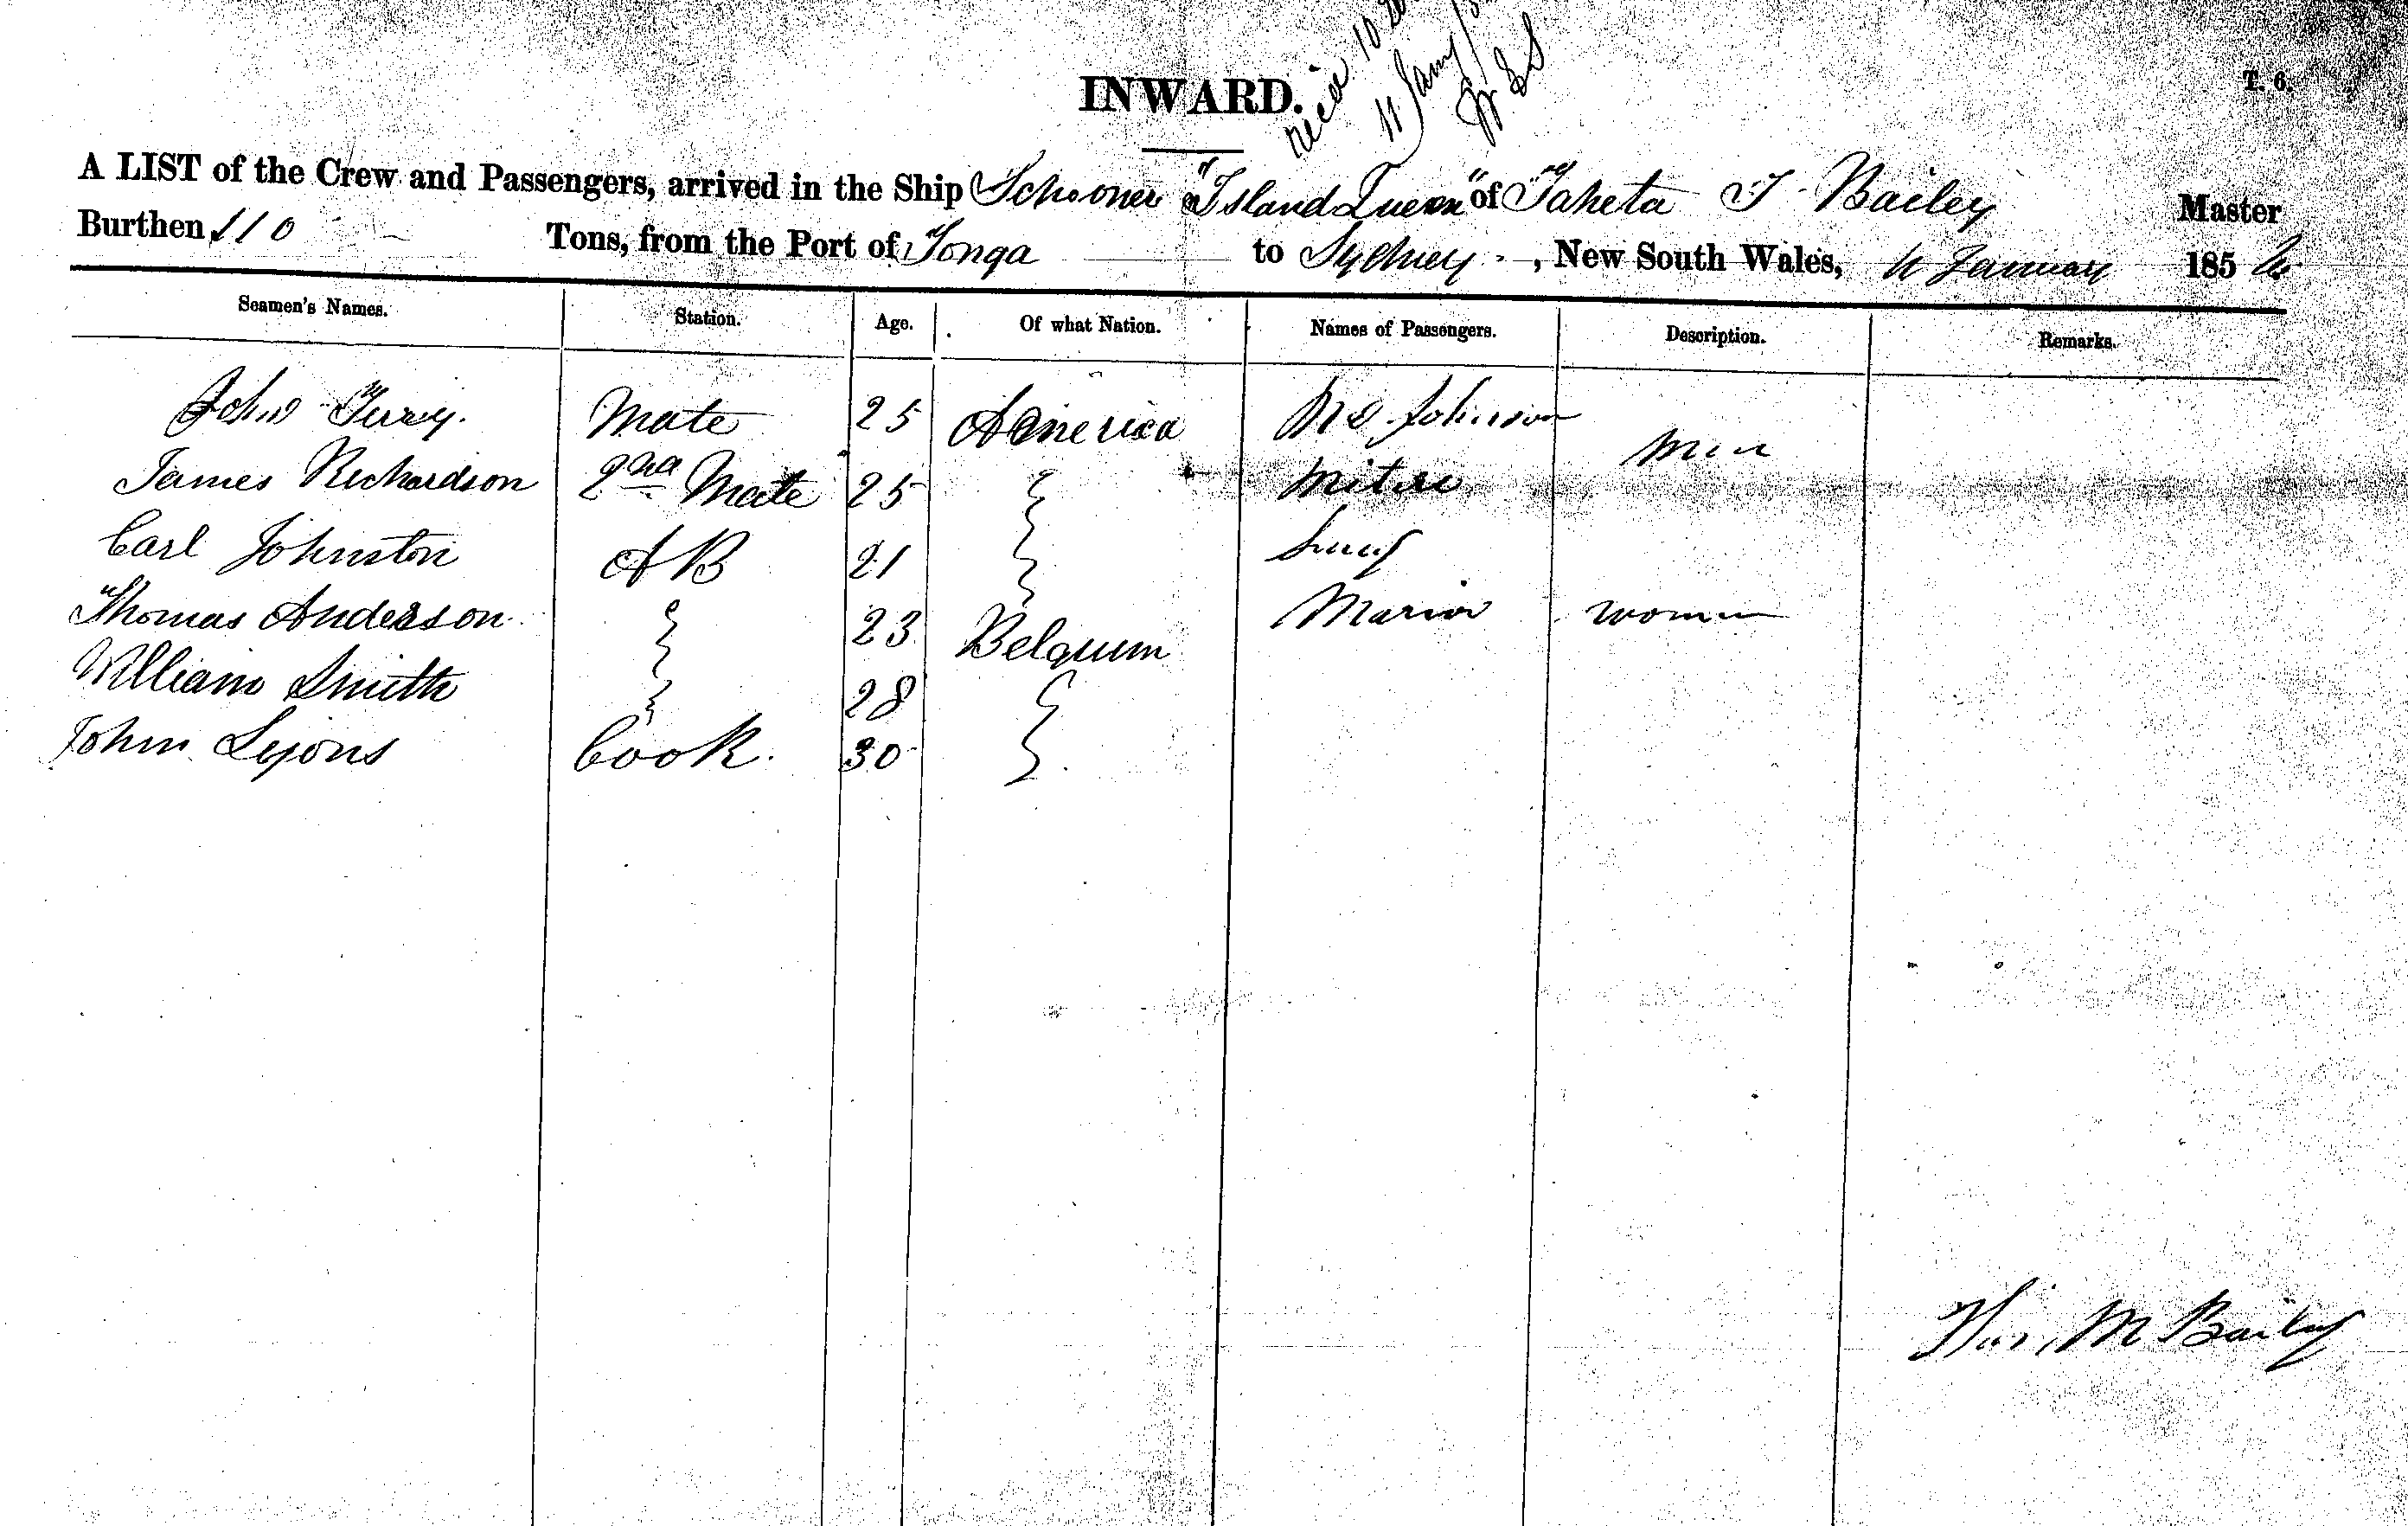 INWARD.
T. 6.
11 Jany
A LIST of the Crew and Passengers, arrived in the Ship Schooner "Island Queen" of Taheta T Bailey Master
Burthen 110 Tons, from the Port of Tonga to Sydney, New South Wales, 11 January 185
Seamen's Names. Station. Age. Of what Nation. Names of Passengers. Description. Remarks.
John Mate 25 America Johnson
James Richardson 2nd Mate 25 men
Carl Johnston AB 21
Thomas Anderson 23 Belguim Maria women
William Smith 28
John Lyons Cook. 30
M Baily